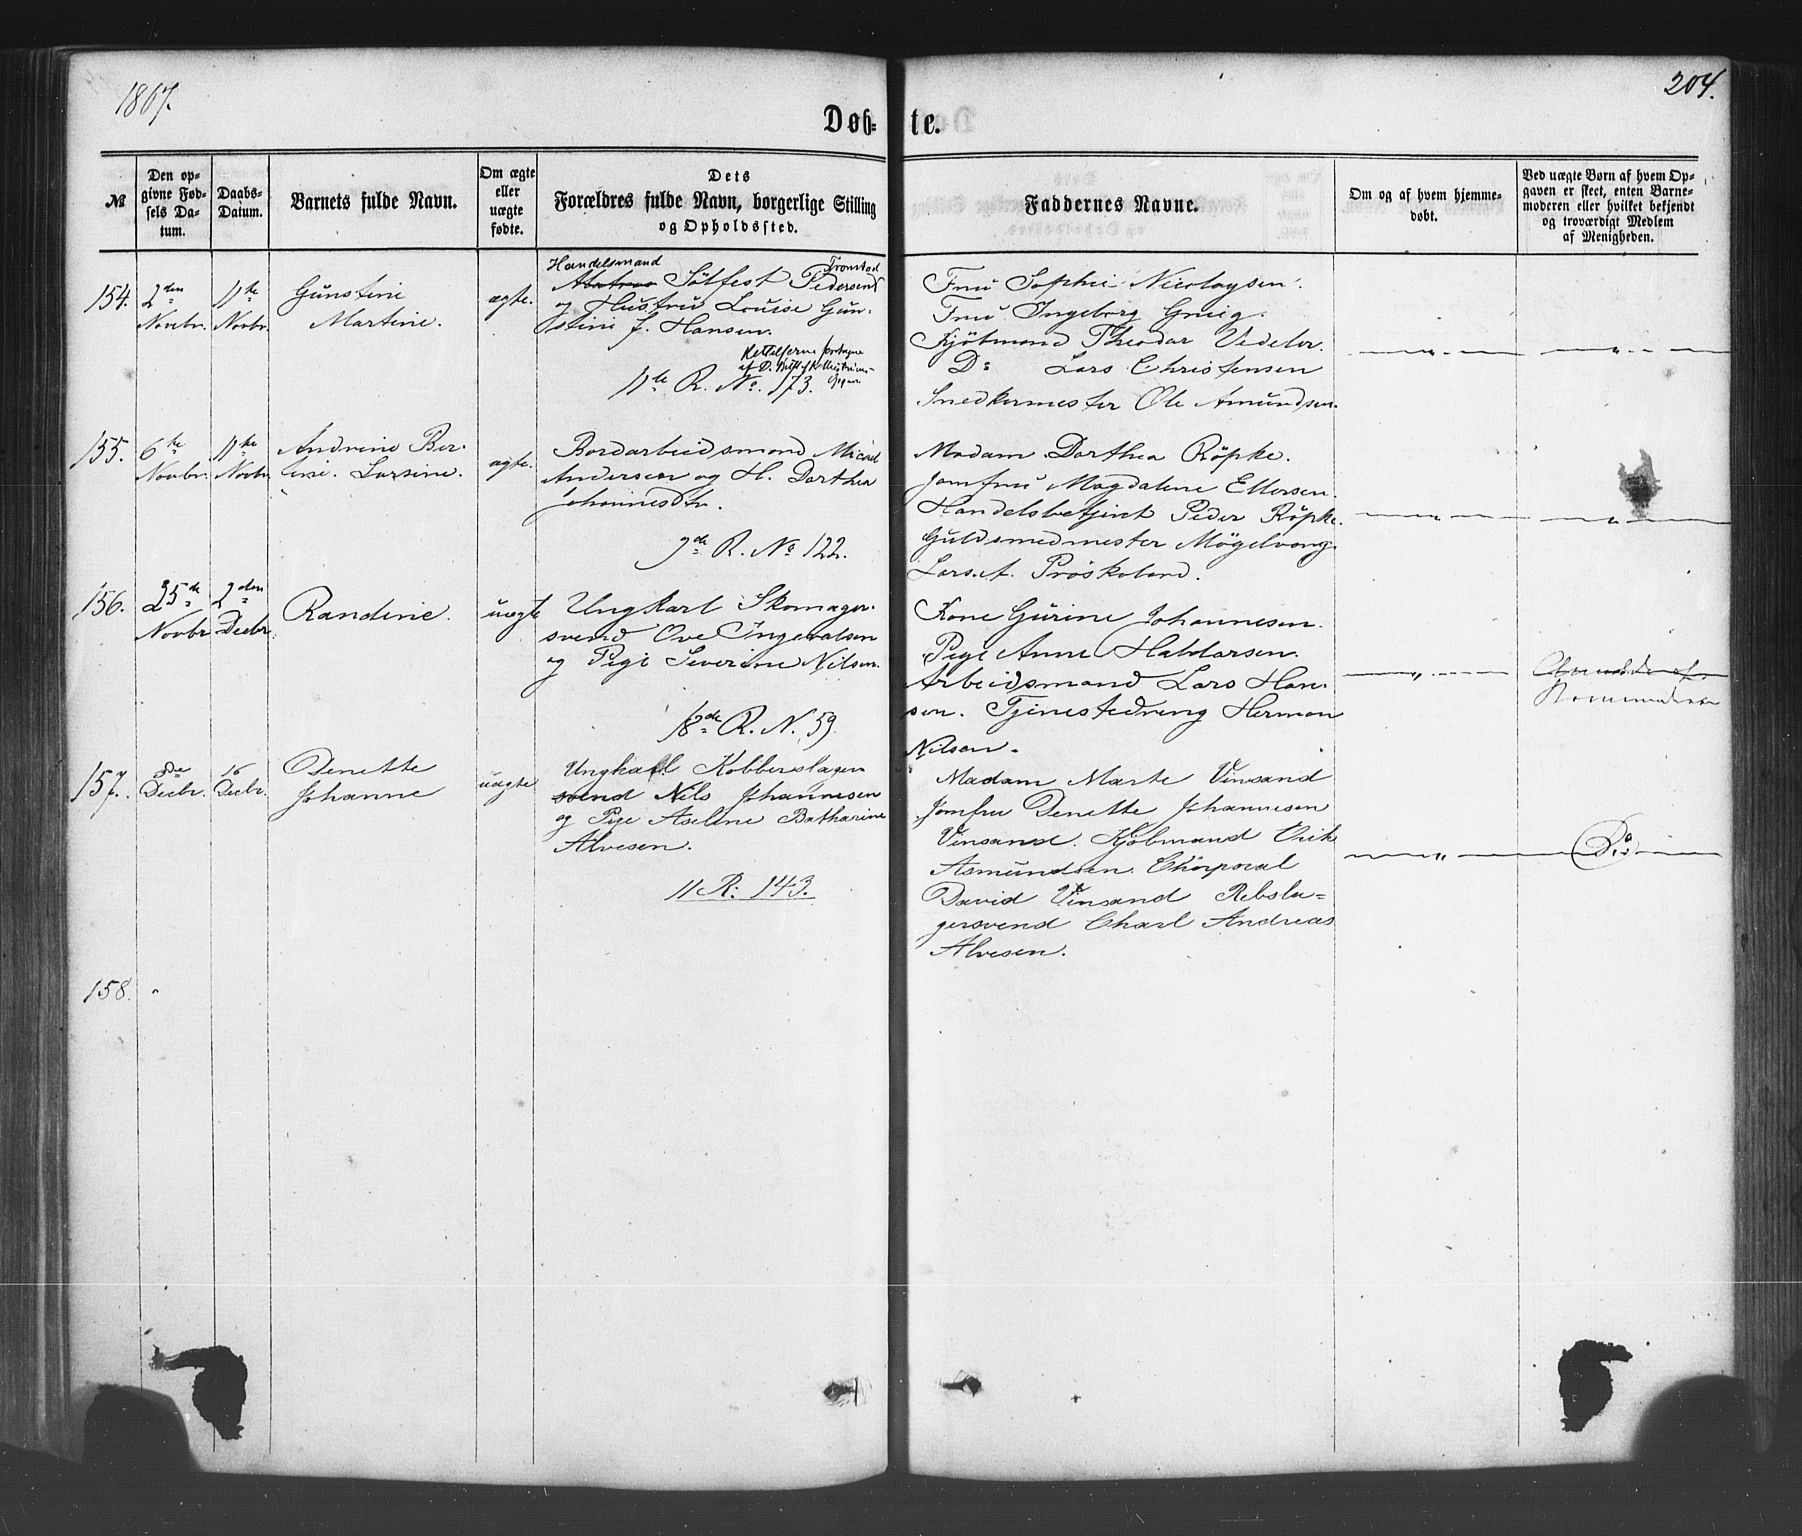 1867.
204.
Døb-
te.
№
Den op-
givne Fød-
sels Da-
tum.
Daabs-
Datum.
Barnets fulde Navn.
Om ægte
eller
uægte
fødte.
Dets
Forældres fulde Navn, borgerlige Stilling
og Opholdssted.
Faddernes Navne.
Om og af hvem hjemme-
døbt.
Ved uægte Børn af hvem Op-
gaven er skeet, enten Barne-
moderen eller hvilket bekjendt
og troværdigt Medlem
af Menigheden.
154.
2den
Novbr.
11te
Novbr.
Gunstine
Martine.
ægte.
Handelsmand
Sölfest Pedersen
og Hustru Louise Gun-
stine f. Hansen.
11te R. No. 173.
Fru Sophie Nicolaysen.
Fru Ingeborg Grieg.
Kjöbmand Theodor Vedeler.
Do Lars Christensen
Snedkermester Ole Amundsen.
155.
6te
Novbr.
11te
Novbr.
Andrine Ber-
tine. Larsine.
ægte.
Bordarbeidsmand Micael
Andersen og H. Dorthea
Johannesdtr.
9de R. No 122.
Madam Dorthea Röpke.
Jomfru Magdalene Ellersen.
Handelsbetjent Peder Röpke.
Guldsmedmester Mögelvang.
156.
25de
Novbr
2den
Decbr.
Randine.
uægte
Ungkarl Skomager-
svend Ove Ingevalsen
og Pige Severine Nilsen.
18de R. N. 59.
Kone Gurine Johannesen.
Pige Anne Haldorsen.
Arbeidsmand Lars Han-
sen. Tjenestedreng Herman
Nilsen.
157.
3de
Decbr.
16
Decbr.
Denette
Johanne
uægte
Ungkarl Kobberslager
svend Nils Johannesen
og Pige Aseline Catharine
Alvesen.
11 R: 143.
Madam Marte Vinsand
Jomfru Denette Johannesen
Vinsand. Kjöbmand Erik
Asmundsen. Chorporal
David Vinsand Rebsla-
gersvend Charl Andreas
Alvesen.
Do
158.